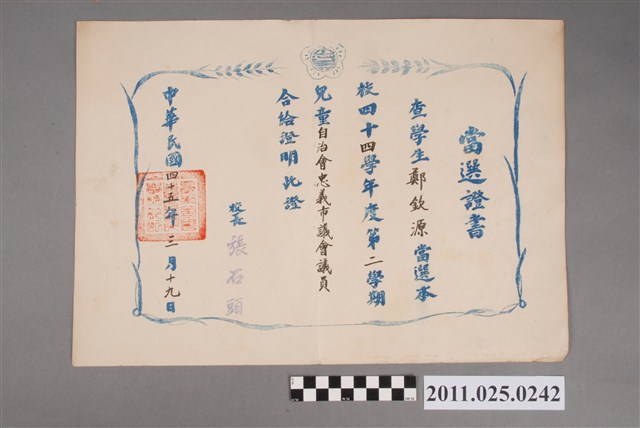 當選證書
查學生鄭敘源當選本
校四十四學年度第二學期
兒童自治會忠義市議會議員
合給證明此證
校長 張石頭
中華民國四十五年三月十九日
2011.025.0242